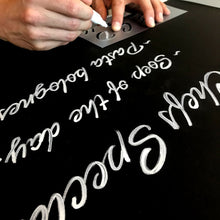 Chefs Specia
- Soep of the day
- Pasta bolognes